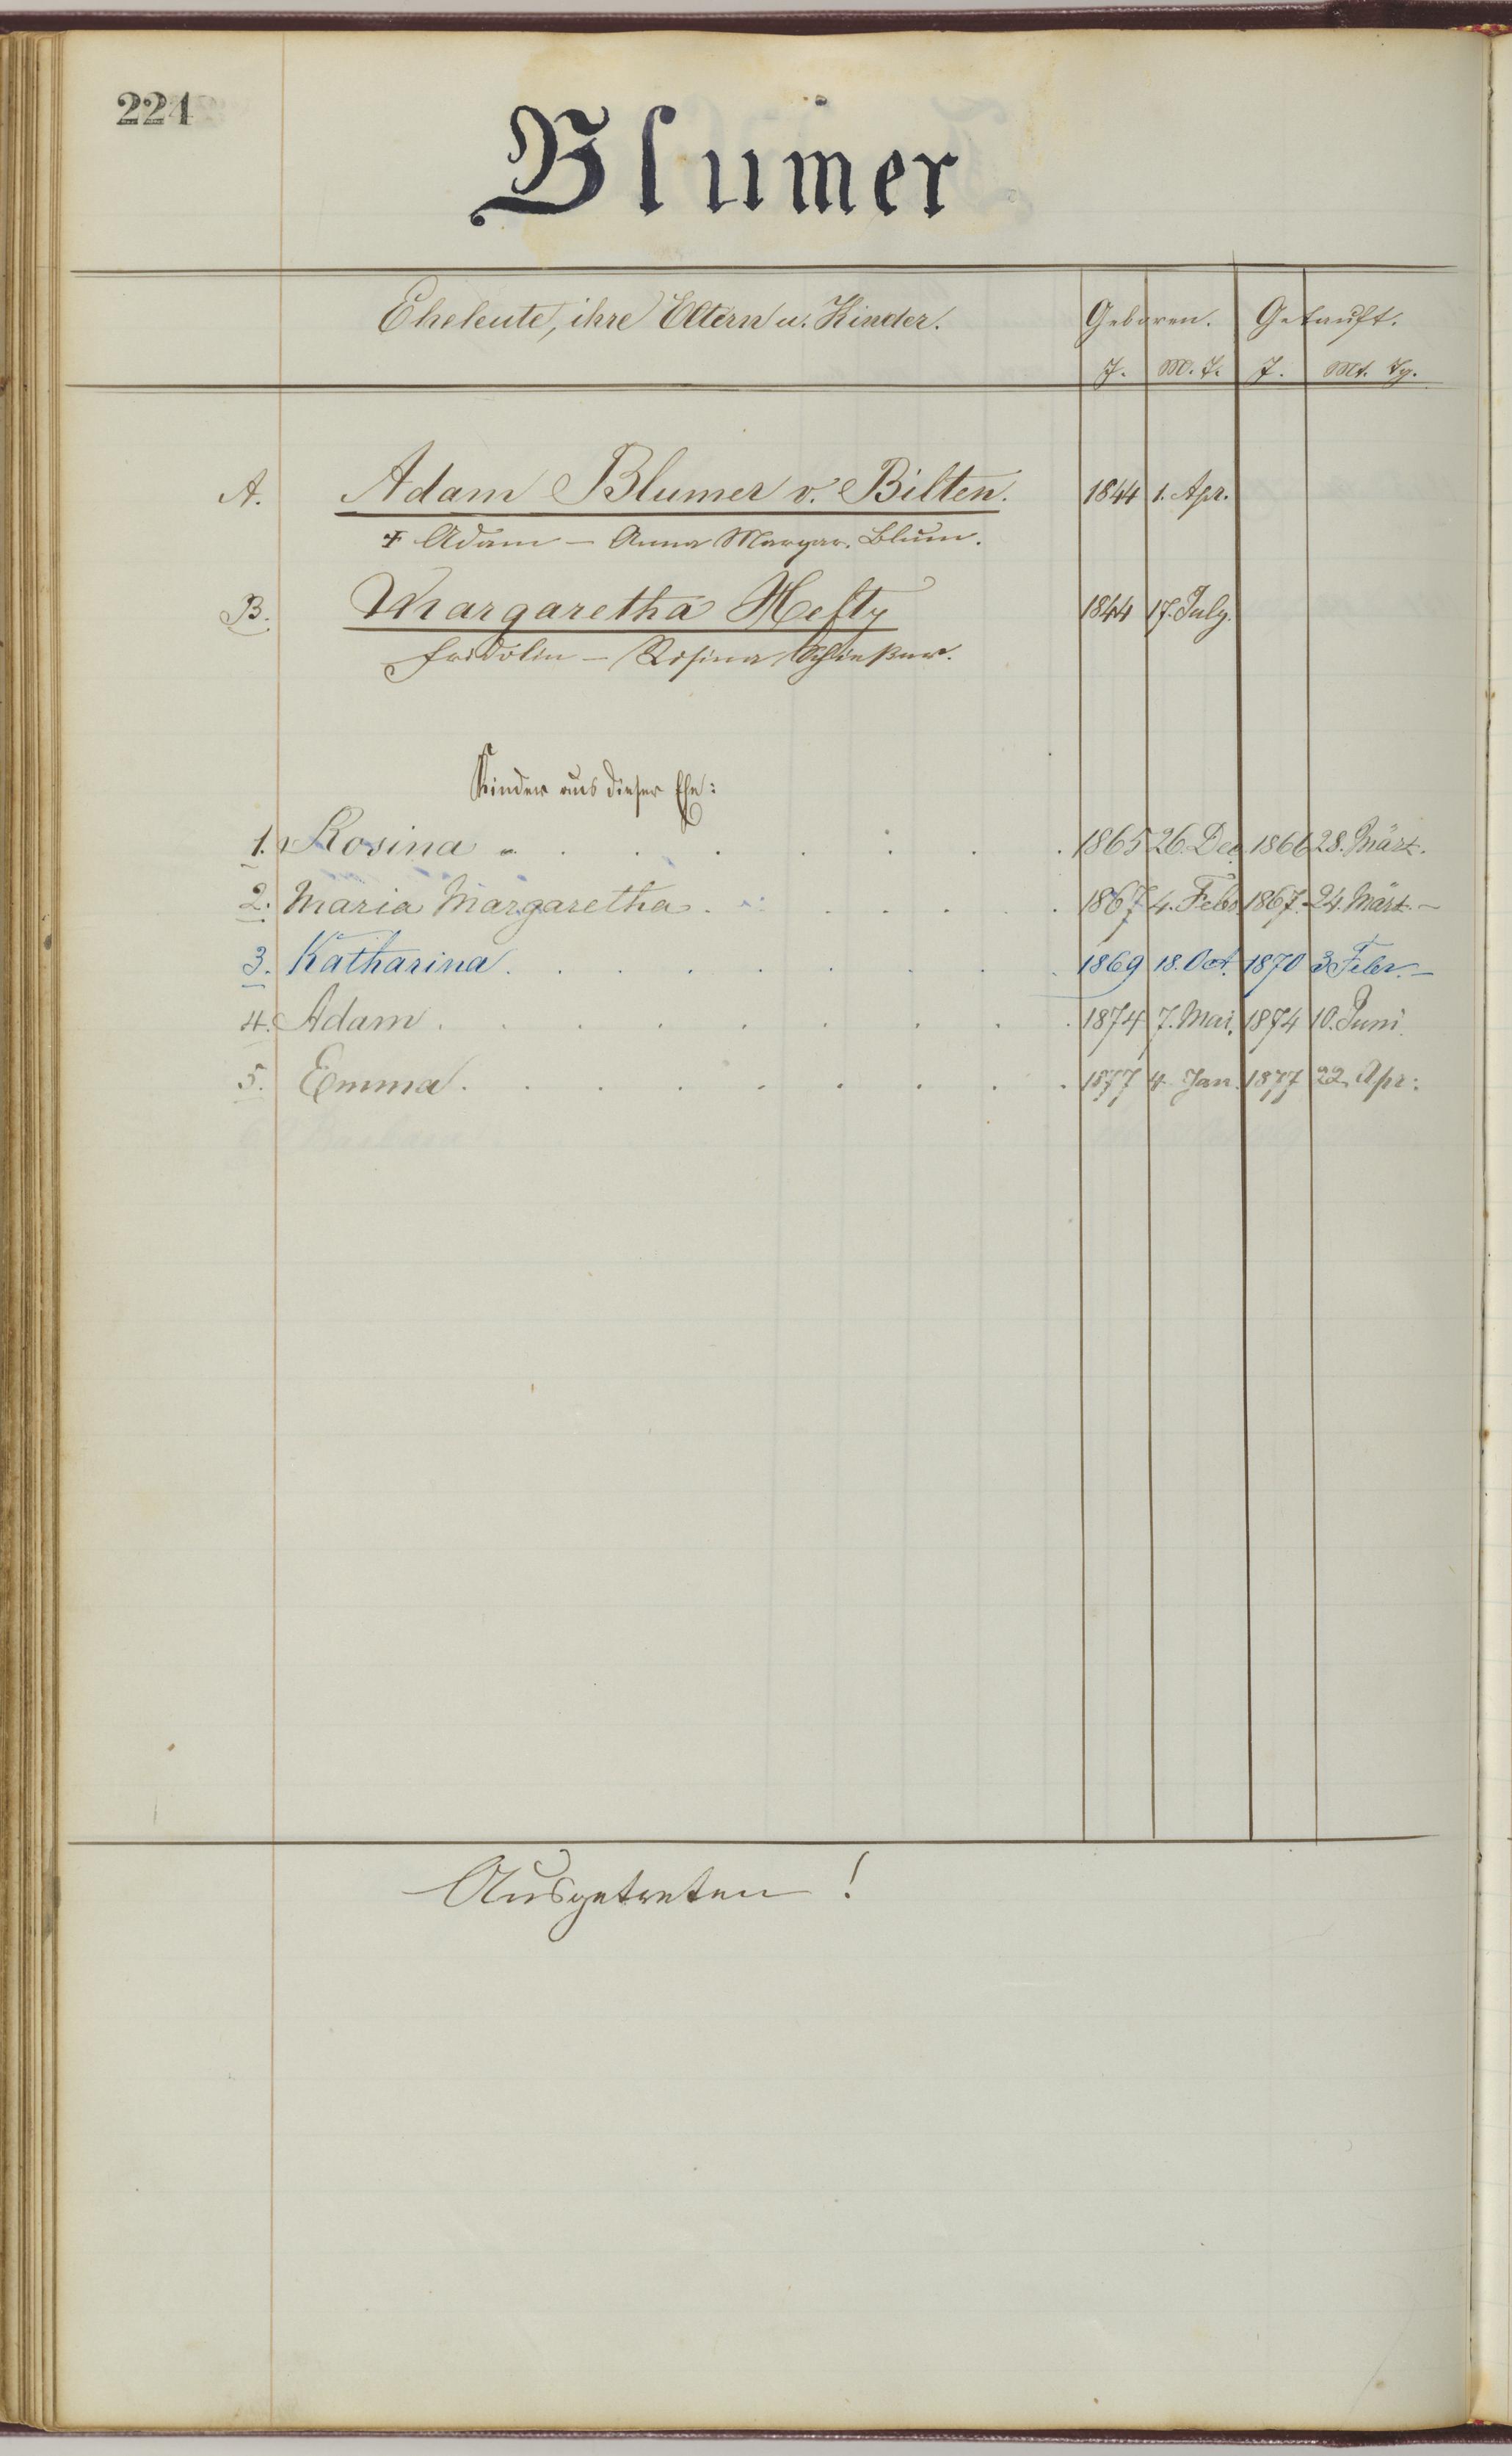 224
Blumer
Eheleute, ihre Eltern u. Kinder. Geboren. Getauft.
J. M. T. J. Mt. Tg.
A. Adam Blumer v. Bilten. 1844 1. Apr.
‡ Adam – Anna Margar. Blum.
B. Margaretha Hefty 1844 17. July.
Fridolin – Rosina
Kinder aus dieser Ehe:
1. Rosina . . . . . . . . 1865 26. Dec. 1866 28. März.
2. Maria Margaretha . . . . . . 1867 4. Febr 1867. 24. März. –
3. Katharina . . . . . . . . 1869 18. Oct. 1870 3 Febr. –
4. Adam . . . . . . . . . 1874 7. Mai. 1874 10. Juni.
5. Emma . . . . . . . . . 1877 4. Jan. 1877 22. Apr:
Ausgetreten !